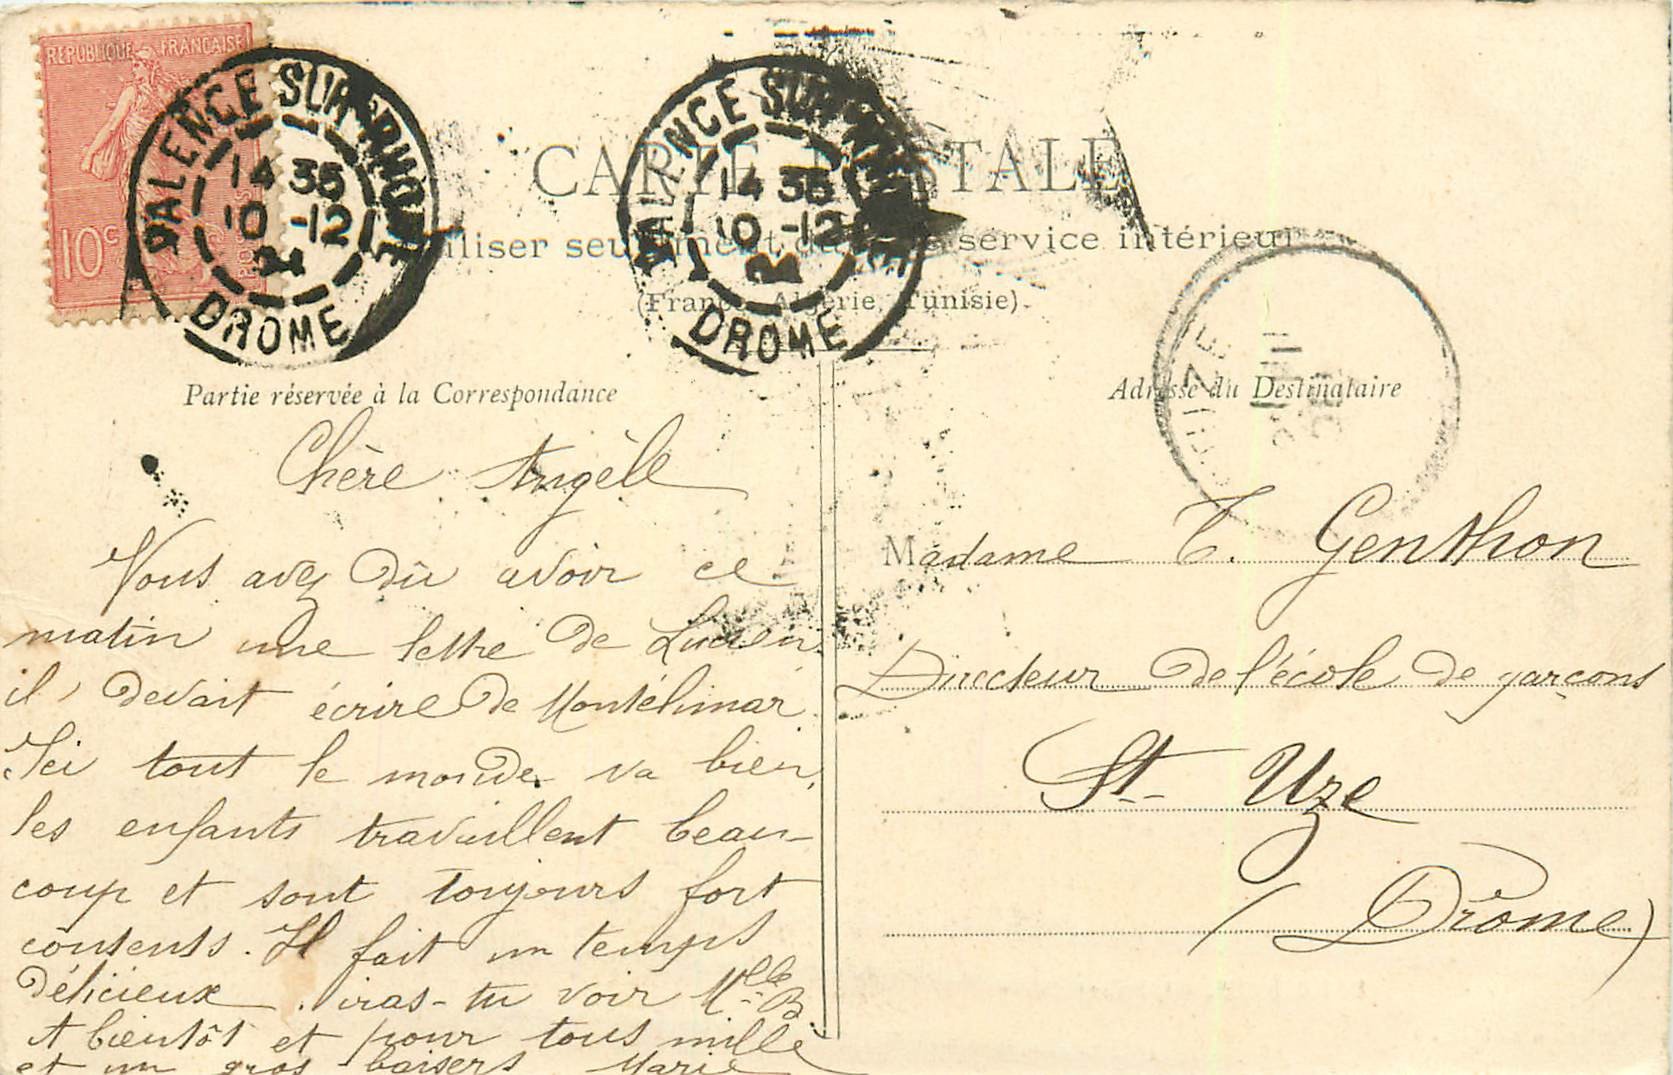 REPUBLIQUE FRANÇAISE
10c POSTES
VALENCE SUR RHONE
14 35
10 -12
DROME
VALENCE SUR RHONE
14 35
10 -12
DROME
CARTE POSTALE
utiliser seulement dans le service intérieur
(France, Algérie, Tunisie)
Partie réservée à la Correspondance
Adresse du Destinataire
Chère Angèle
Vous avez dû avoir ce
matin une lettre de Lucien
il devait écrire de Montélimar
Ici tout le monde va bien,
les enfants travaillent beau-
coup et sont toujours fort
contents. Il fait un temps
délicieux. iras-tu voir Mlle B
A bientôt et pour tous mille
et un gros baisers Marie
Madame T. Genthon
Directeur de l'école de garçons
St- Uze
(Drôme)